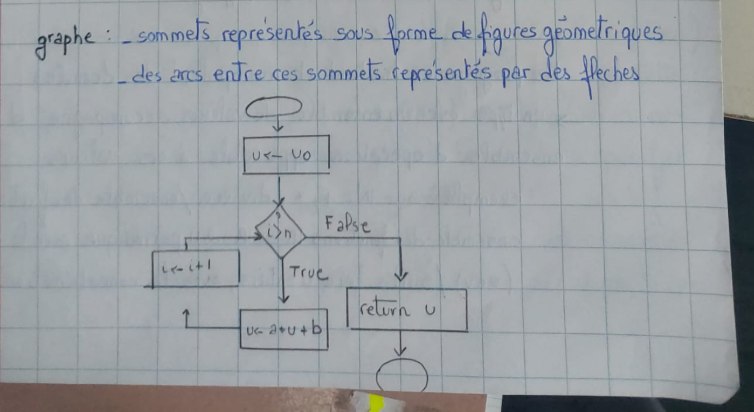 graphe : - sommets représentés sous forme de figures géometriques
- des arcs entre ces sommets représentés par des fleches
u <- u0
?
i>n
False
i <- i+1
True
return u
u <- a*u+b